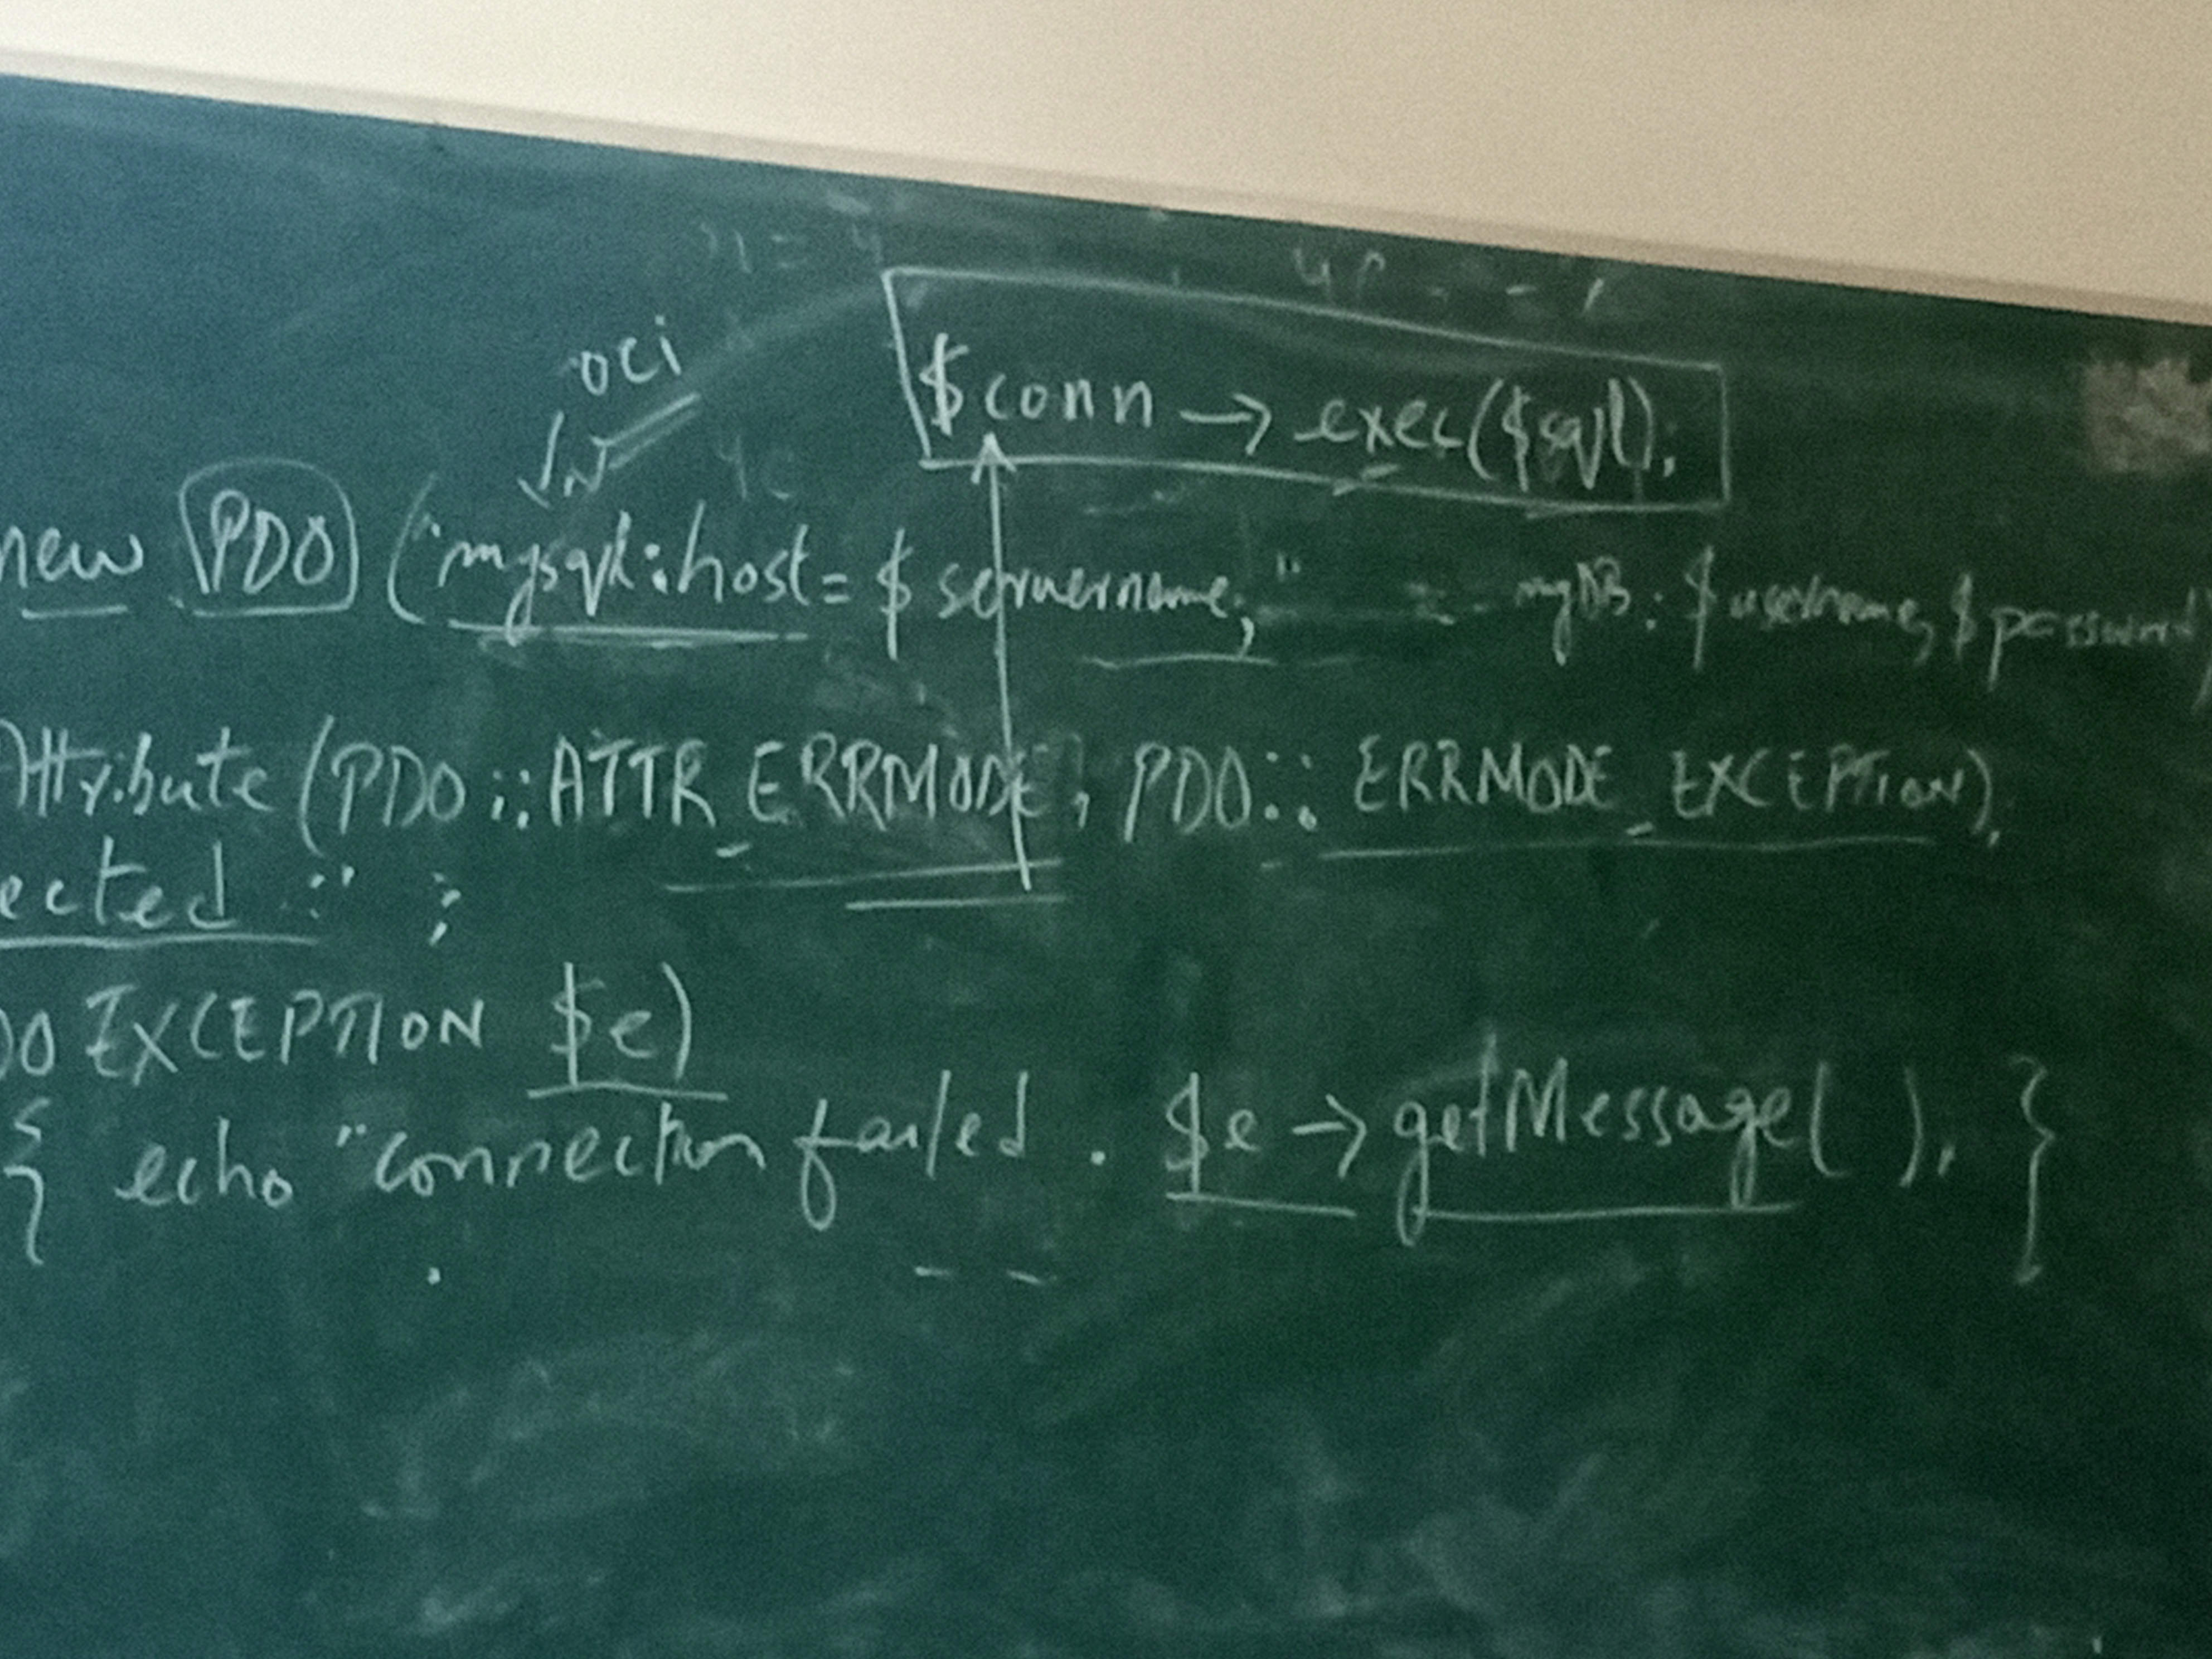 oci
$conn → exec($sql);
new PDO ("mysql:host = $servername;" myDB: $username, $password)
Attribute (PDO::ATTR_ERRMODE, PDO:: ERRMODE_EXCEPTION);
ected " ;
DO EXCEPTION $e)
{ echo "connection failed . $e → getMessage( ); }